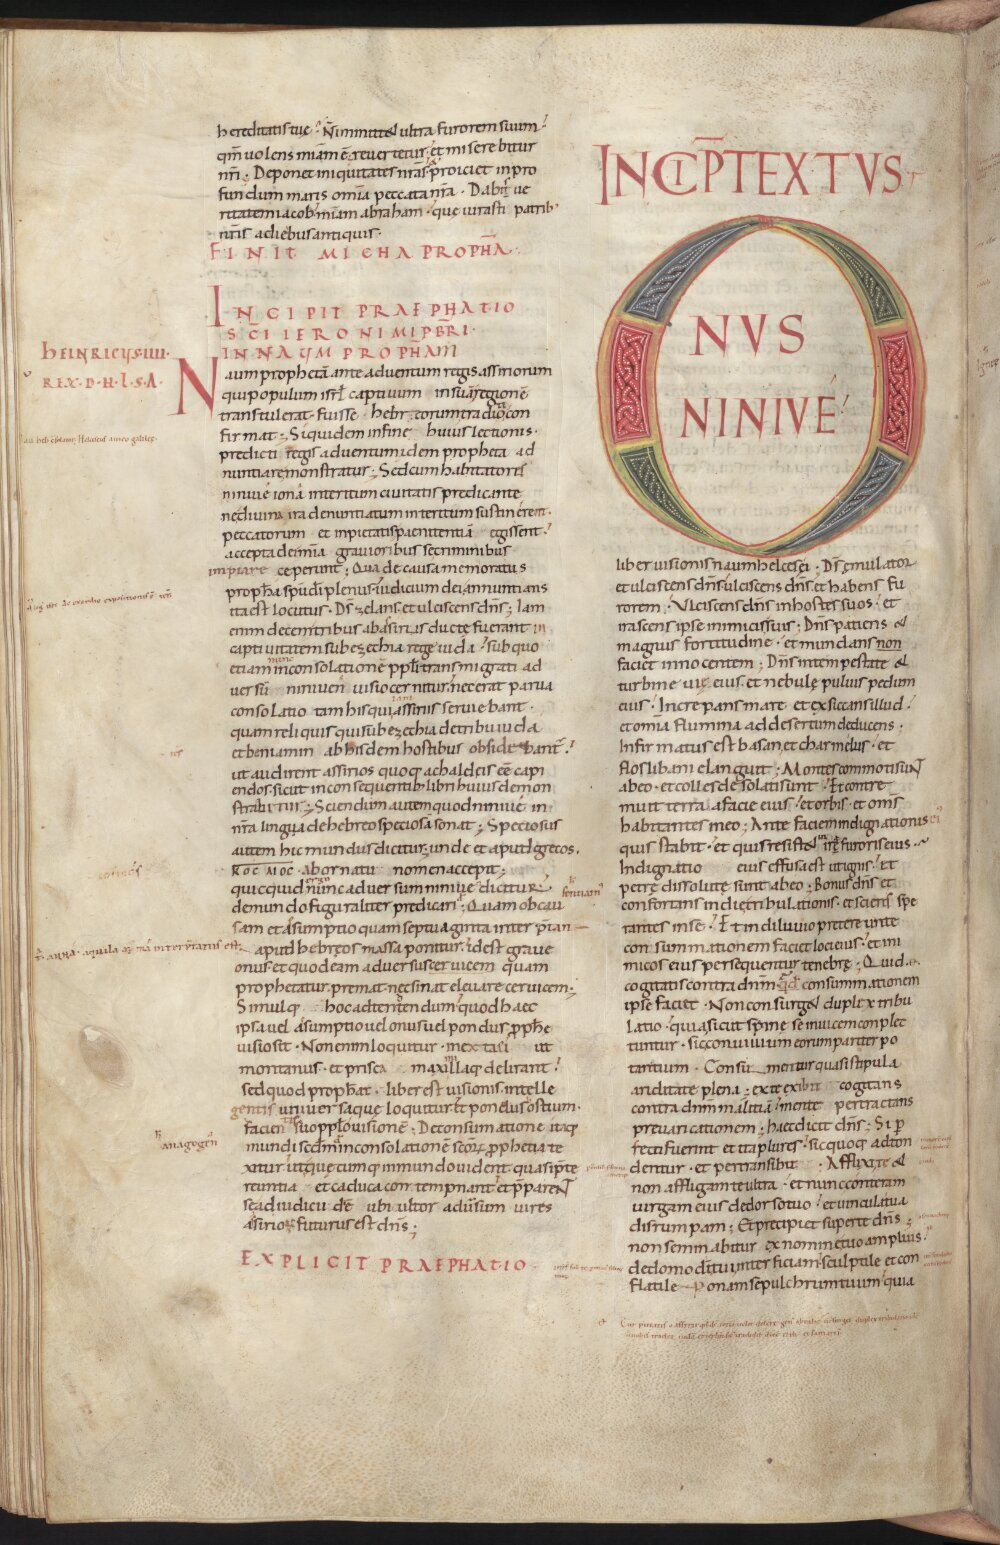 hereditatis tuę. Ñ immittet ultra furorem suum.
qm̃ uolens miam ẽ. reuertetur. et miserebitur
nr̃i. Deponet iniquitates nr̃as. proiciet in pro
fundum maris omĩa peccata nr̃a. Dabis ue
ritatem iacob. miam abraham. quę iurasti patrib
nr̃is a diebus antiquis.
FINIT MICHA PROPHA.
INCIPIT PRAEPHATIO
SCI IERONIMI PBRI.
IN NAUM PROPHAM
HEINRICUS IIII.
REX. D. H. L. S. A.
Naum prophetã ante aduentum regis assiriorum
qui populum isrl̃ captiuum in suã regionẽ
transtulerat. fuisse hebręorum traditio con
firmat. Siquidem in fine huius lectionis.
predicti regis aduentum idem propheta ad
nuntiare monstratur. Sed cum habitatores
niniuę iona interitum ciuitatis predicante
nec diuina ira denuntiatum interitum sustinerent.
peccatorum et impietatis paenitentiã egissent.
accepta deinia grauioribus se criminibus
impiare ceperunt. Qua de causa memoratus
propha spũ di plenus. iudicium dei annuntians
ita est locutus. Ds̃ zelans. et ulciscens dns̃. Iam
enim decem tribus ab assiriis ductę fuerant in
captiuitatem sub ezechia rege iuda. sub quo
etiam nunc in consolationẽ ppl̃i transmigrati ad
uersũ niniuen uisio cernitur. nec erat parua
consolatio tam his qui iam assiriis seruiebant.
quam reliquis qui sub ezechia de tribu iuda
et beniamin ab hisdem hostibus obsidebant.
ut audirent assirios quoq a chaldeis eẽ capi
endos. sicut in consequentib libri huius demon
strabitur. Sciendum autem quod niniue in
nr̃a lingua de hebreo speciosa sonat. Speciosus
autem hic mundus dicitur. unde et aput grecos.
KOCMOC. ab ornatu nomen accepit.
quicquid ergo nunc aduersum niniue dicitur.
de mundo figuraliter predicari. Quam ob cau
sam et assumptio quam septuaginta interp̃tan
aput hebreos massa ponitur. id est graue
onus et quod eam aduersus ceruicem quam
prophetatur. premat. nec sinat eleuare ceruicem.
Simulq hoc adtendendum quod haec
ipsa uel assumptio uel onus uel pondus pphę
uisio sit. Non enim loquitur. in extasi ut
montanus. et prisca maximillaq delirant.
sed quod prophat. liber est uisionis. intelle
gentis uniuersaque loquitur. et pondus ostium.
facientis in suo pplo uisionẽ. De consumatione itaq
mundi scdm in consolationẽ scõr prophetia te
xitur. ut quecumq in mundo uident. quasi p̃te
reuntia et caduca contempnant. et pparent
se ad iudicii diẽ ubi ultor aduersum uires
assirios futurus est dns̃.
EXPLICIT PRAEPHATIO
INCIP TEXTUS
ONUS
NINIVE
liber uisionis naum helcesei. Ds̃ ęmulator
et ulciscens dns̃. ulciscens dns̃. et habens fu
rorem. Ulciscens dns̃ in hostes suos. et
irascens ipse inimicis suis. Dns̃ patiens et
magnus fortitudine. et mundans non
faciet innocentem. Dns̃ in tempestate et
turbine uię eius. et nebulę puluis pedum
eius. Increpans mare et exsiccans illud.
et omĩa flumina ad desertum deducens.
Infirmatus est basan. et charmelus. et
flos libani elanguit. Montes commoti sunt
ab eo. et colles desolati sunt. Et contre
muit terra a facie eius. et orbis. et om̃s
habitantes in eo. Ante faciem indignationis ei
quis stabit. et quis resistet in ira furoris eius.
Indignatio eius effusa est ut ignis. et
petrę dissolutę sunt ab eo. Bonus dns̃ et
confortans in die tribulationis. et sciens spe
rantes in se. Et in diluuio pretereunte
consummationem faciet loci eius. et ini
micos eius persequentur tenebrę. Quid
cogitatis contra dnm̃. qđ consummationem
ipse faciet. Non consurget duplex tribu
latio. quia sicut spinę se inuicem conplec
tuntur. sic conuiuium eorum pariter po
tantium. Consumentur quasi stipula
ariditate plena. ex te exibit cogitans
contra dnm̃ malitiã. mente pertractans
preuaricationem. haec dicit dns̃. Si p
fecti fuerint et ita plures. sic quoq adton
dentur. et pertransibit. Afflixi te et
non affligam te ultra. et nunc conteram
uirgam eius de dorso tuo. et uincula tua
disrumpam. Et precipiet super te dns̃.
non seminabitur ex nomine tuo amplius.
de domo di tui interficiam sculptile et con
flatile. Ponam sepulchrum tuum quia